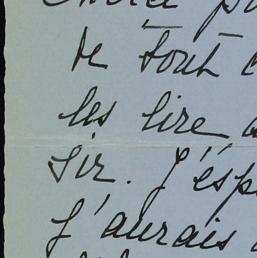 de tout
les lire
sir. J'esp
J'aurais